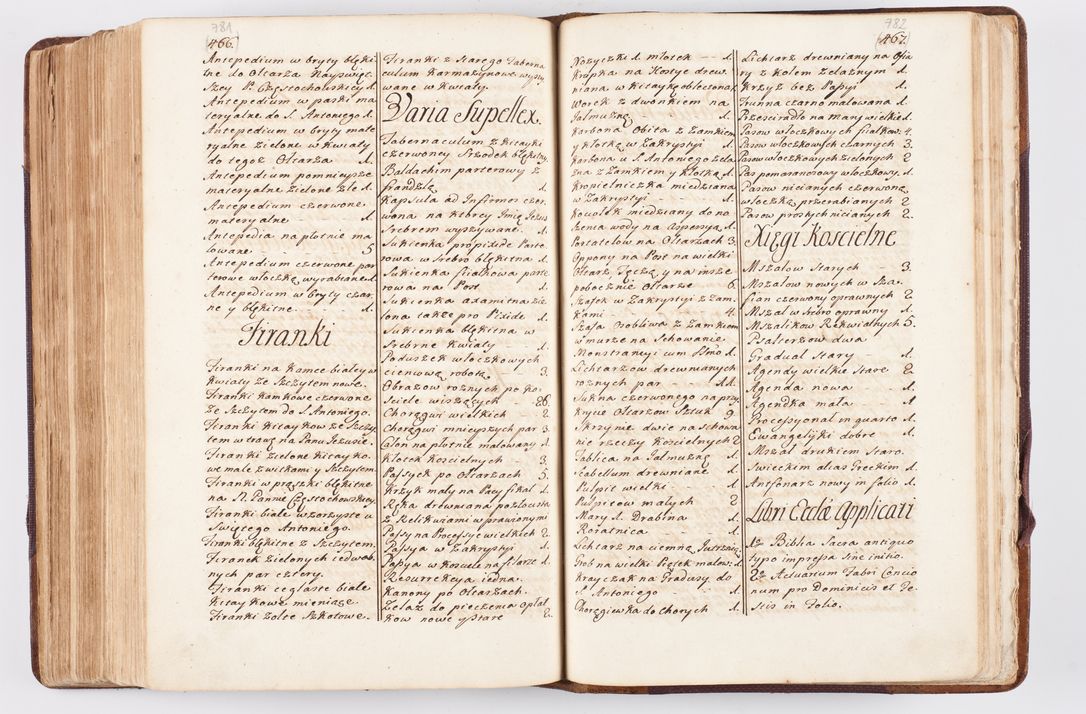 781
466.
Antepedium w bryty błęki
tne do Ołtarza Nayswięt.
szey P. Częstochowskiey 1.
Antepedium w paski ma
teryalne do S. Antoniego 1.
Antepedium w bryty mate
ryalne zielone w kwiaty
do tegoż Ołtarza 1.
Antepedium pomnieysze
materyalne zielone złe 1.
Antepedium czerwone
materyalne - 1.
Antepedia na płotnie ma
lowane. 5
Antepedium czerwone par
terowe włoczką wyrabiane 1.
Antepedium w bryty czar.
ne y błękitne. - 1.
Firanki
Firanki na kamce białey w
kwiaty ze Szczytem nowe.
Firanki kamkowe czerwone
ze Szczytem do S. Antoniego.
Firanki kitaykowe ze Szczy.
tem w trawę na Panu Jezusie.
Firanki zielone kitayko.
we małe z witkami y Szczytem
Firanki w prążki błękitne
na N. Pannie Częstochowskiey.
Firanki białe wzorzyste u
Swiętego Antoniego.
Firanki błękitne z Szczytem.
Firanek zielonych iedwab.
nych par cztery.
Firanki ceglaste białe
kitaykowe mieniące.
Firanki żołte Szkotowe.
Firanki z Starego Taberna
culum karmazynowe wyszy
wane w kwiaty.
Varia Supellex.
Tabernaculum z kitayki
czerwoney Srzodek błękitny.
Baldachim parterowy z
frandzlą 1.
Kapsula ad Infirmos czer.
wona na ktorey Imię Jezus
Srebrem wyszywane. 1.
Sukienka pro pixide Parte
rowa w Srebro błękitna 1.
Sukienka fiałkowa parte
rowa na Post. 1.
Sukienka adamitna zie
lona także pro Pixide 1.
Sukienka błękitna w
Srebrne kwiaty - 1.
Poduszek włoczkowych
cieniową robotą - 3.
Obrazow rożnych po ko.
ściele wiszących - 26.
Chorągwi wielkich - 2.
Chorągwi mnieyszych par 3.
Całon na płotnie malowany 1.
Kłotek Kościelnych 3.
Passyek po Ołtarzach 5.
Krzyż mały na Pacyfikał 1.
Ręka drewniana pozłocista
z Relikwiami w prawionymi
Passy na Processye wielkich 2.
Passya w Zakrystyi 1.
Passya w Kościele na filarze 1.
Resurrekcya iedna.
Kanony po Ołtarzach.
Zelaz do pieczenia opłat
kow nowe y Stare 2.
782
467.
Nożyczki 1. młotek - 1.
Kropka na Hostye drew.
niana w kitaykę obleczona 1.
Worek z dwonkiem na
Jałmużnę 1.
Karbona obita z Zamkiem
y kłotką w Zakrystyi 1.
Karbona u S. Antoniego żela.
zna z Zamkiem y kłotką 1.
Kropielniczka miedziana
w Zakrystyi 1.
Kociołek miedziany do no
szenia wody na Aspersyą 1.
Portatelow na Ołtarzach 3.
Oppony na Post na wielki
Ołtarz, Tęczą y na insze
poboczne Ołtarze 6.
Szafek w Zakrystyi z Zam.
kami 4.
Szafa Osobliwa z Zamkiem
w murze na Schowanie
Monstrancyi cum SSmo 1.
Lichtarzow drewnianych
rożnych par - 11.
Sukna czerwonego na przy.
krycie Ołtarzow Sztuk 9
Skrzynie dwie na Schowa
nie rzeczy Kościelnych 2
Tablica na Jałmużnę 1.
Scabellum drewniane 1.
Pulpit wielki 1.
Pulpitow małych 2
Mary 1. Drabina 1.
Roratnica 1.
Lichtarz na ciemną Jutrznię
Grob na wielki Piątek malow. 1.
Krayczak na Gradusy do
S. Antoniego 1.
Chorągiewka do Chorych 1.
Lichtarz drewniany na Ofia
ry z Kołem żelaznym 1.
Krzyż bez Passyi 1.
Trunna czarno malowana 1.
Przescieradło na Mary wielkie 1.
Pasow włoczkowych fiałkow. 4.
Pasow włoczkowych czarnych 3.
Pasow włoczkowych zielonych 2
Pas pomaranczowy włoczkowy. 1.
Pasow nicianych czerwoną
włoczką przerabianych 2.
Pasow prostych nicianych 2.
Xięgi Koscielne
Mszałow Starych 3.
Mszałow nowych w Sza.
fian czerwony oprawnych 2.
Mszał w Srebro oprawny 1.
Mszalikow Rekwialnych 5.
Psałterzow dwa
Graduał Stary 1.
Agendy wielkie Stare 2
Agenda nowa 1.
Agendka mała 1
Processyonał in quarto 1.
Ewangeliyki dobre 1.
Mszał drukiem Staro.
Swieckim alias Greckim 1.
Antfonarz nowy in folio 1.
Libri Ecclæ Applicati
1o Biblia Sacra antiquo
typo impressa Sine initio.
2o Actuarium Fabri Concio
num pro Dominicis et Fe
stis in Folio.